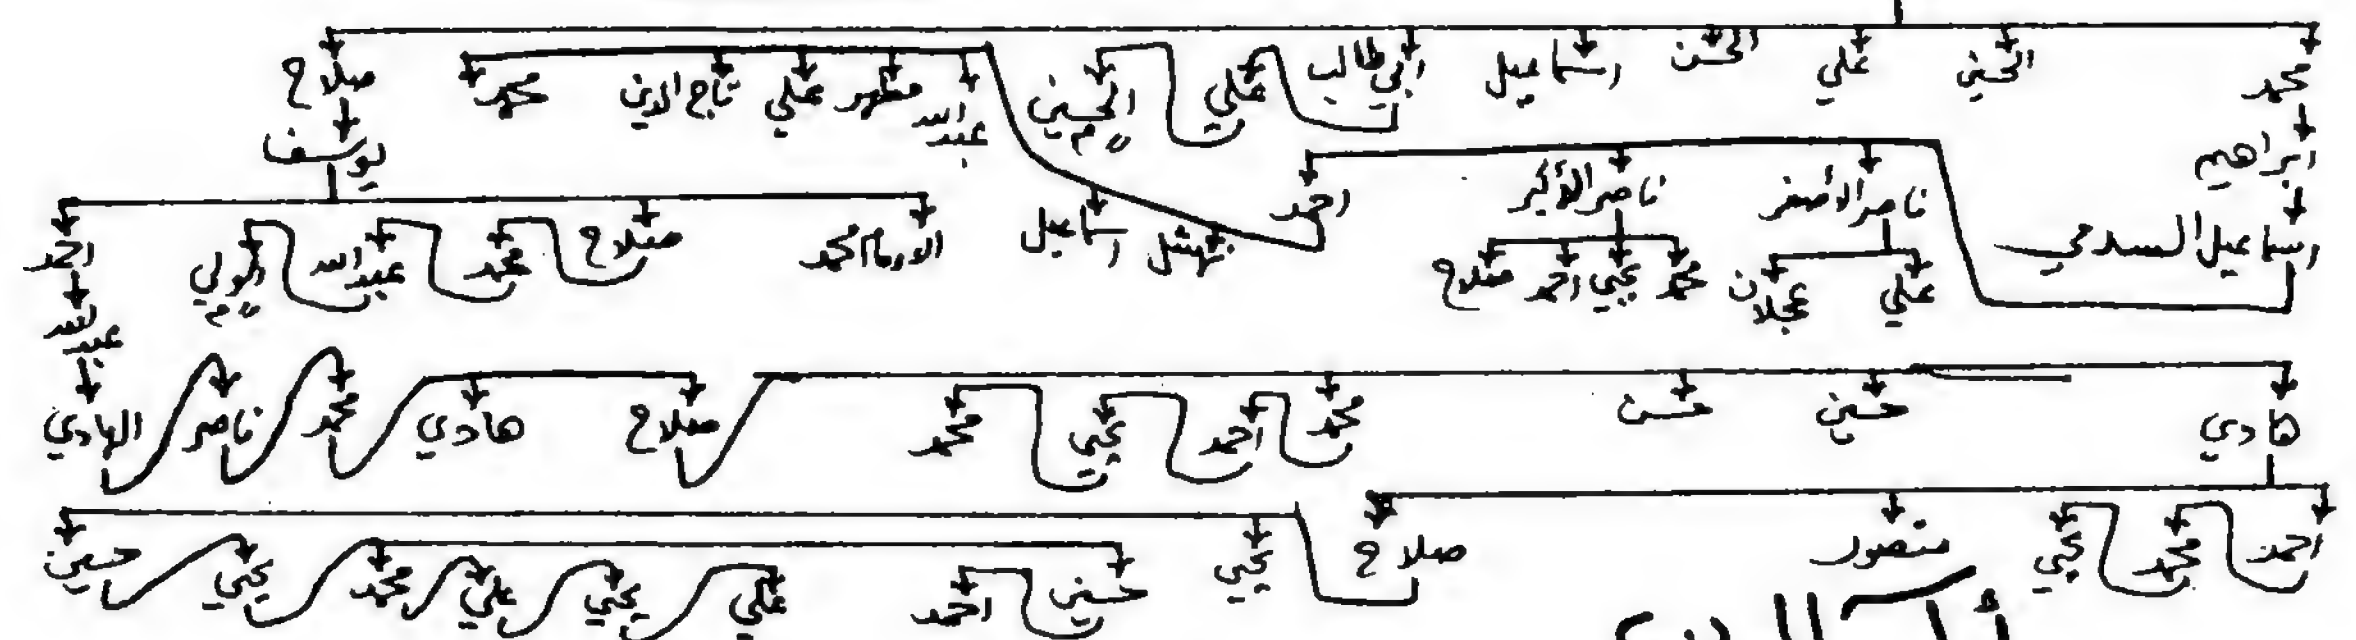 محمد الحسين علي الحسن اسماعيل ابي طالب علي الحسين عبدالله مطهر علي تاج الدين محمد صلاح
ابراهيم يوسف
اسماعيل السلامي ناصر الأصغر ناصر الأكبر احمد نهشل اسماعيل الامام محمد صلاح محمد عبدالله الولي احمد
علي عجلان محمد يحيى احمد صلاح عبدالله
هادي حسين حسن محمد احمد يحيى محمد صلاح هادي محمد ناصر الهادي
احمد محمد يحيى منصور صلاح يحيى حسين احمد علي يحيى علي محمد يحيى حسين